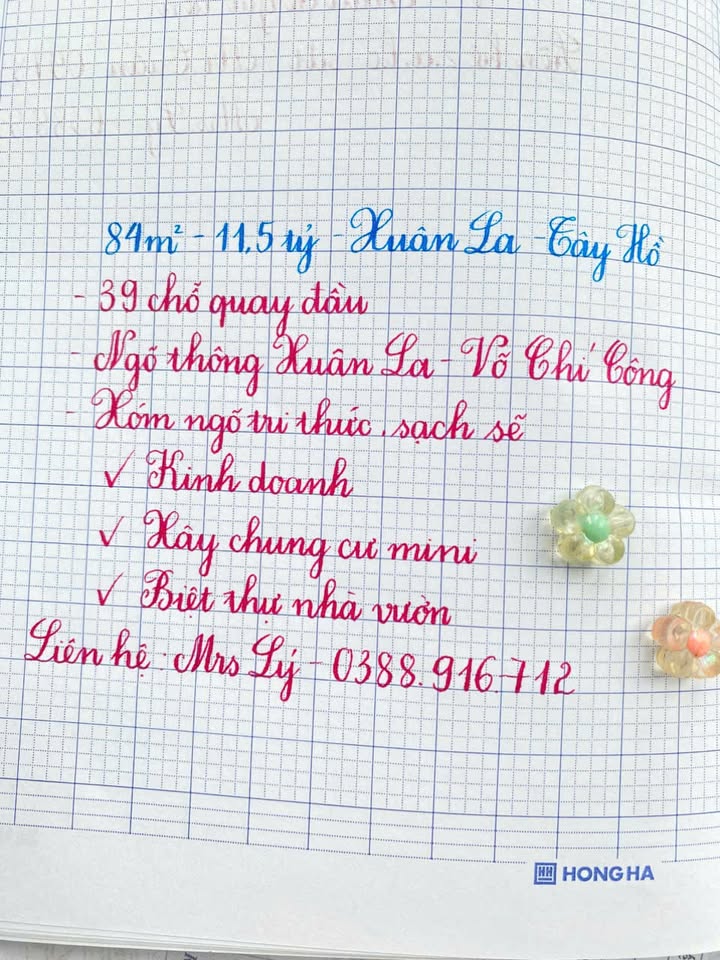 84m² - 11,5 tỷ - Xuân La - Tây Hồ
- 39 chỗ quay đầu
- Ngõ thông Xuân La - Võ Chí Công
- Xóm ngõ tri thức, sạch sẽ
✓ Kinh doanh
✓ Xây chung cư mini
✓ Biệt thự nhà vườn
Liên hệ: Mrs Lý - 0388.916.712
HH HONG HA